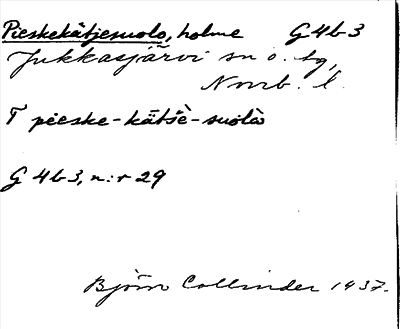 Pieskekätjesuolo, holme G4b3
Jukkasjärvi sn o. tg,
Norrb. l.
T pieske-kät̀šè-suolò
G 4b3, n:r 29
Björn Collinder 1937.